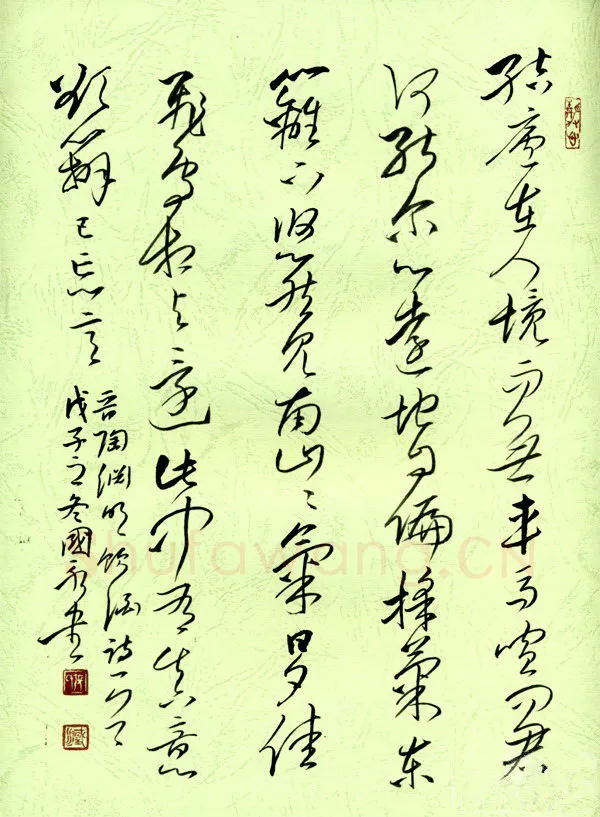 結廬在人境而無車馬喧問君
何能尔心遠地自偏採菊東
籬下悠然見南山〻氣日夕佳
飛鳥相與還此中有真意
欲辯已忘言
晋陶淵明飲酒詩一首
戊子之冬國永書
shufawang.CN